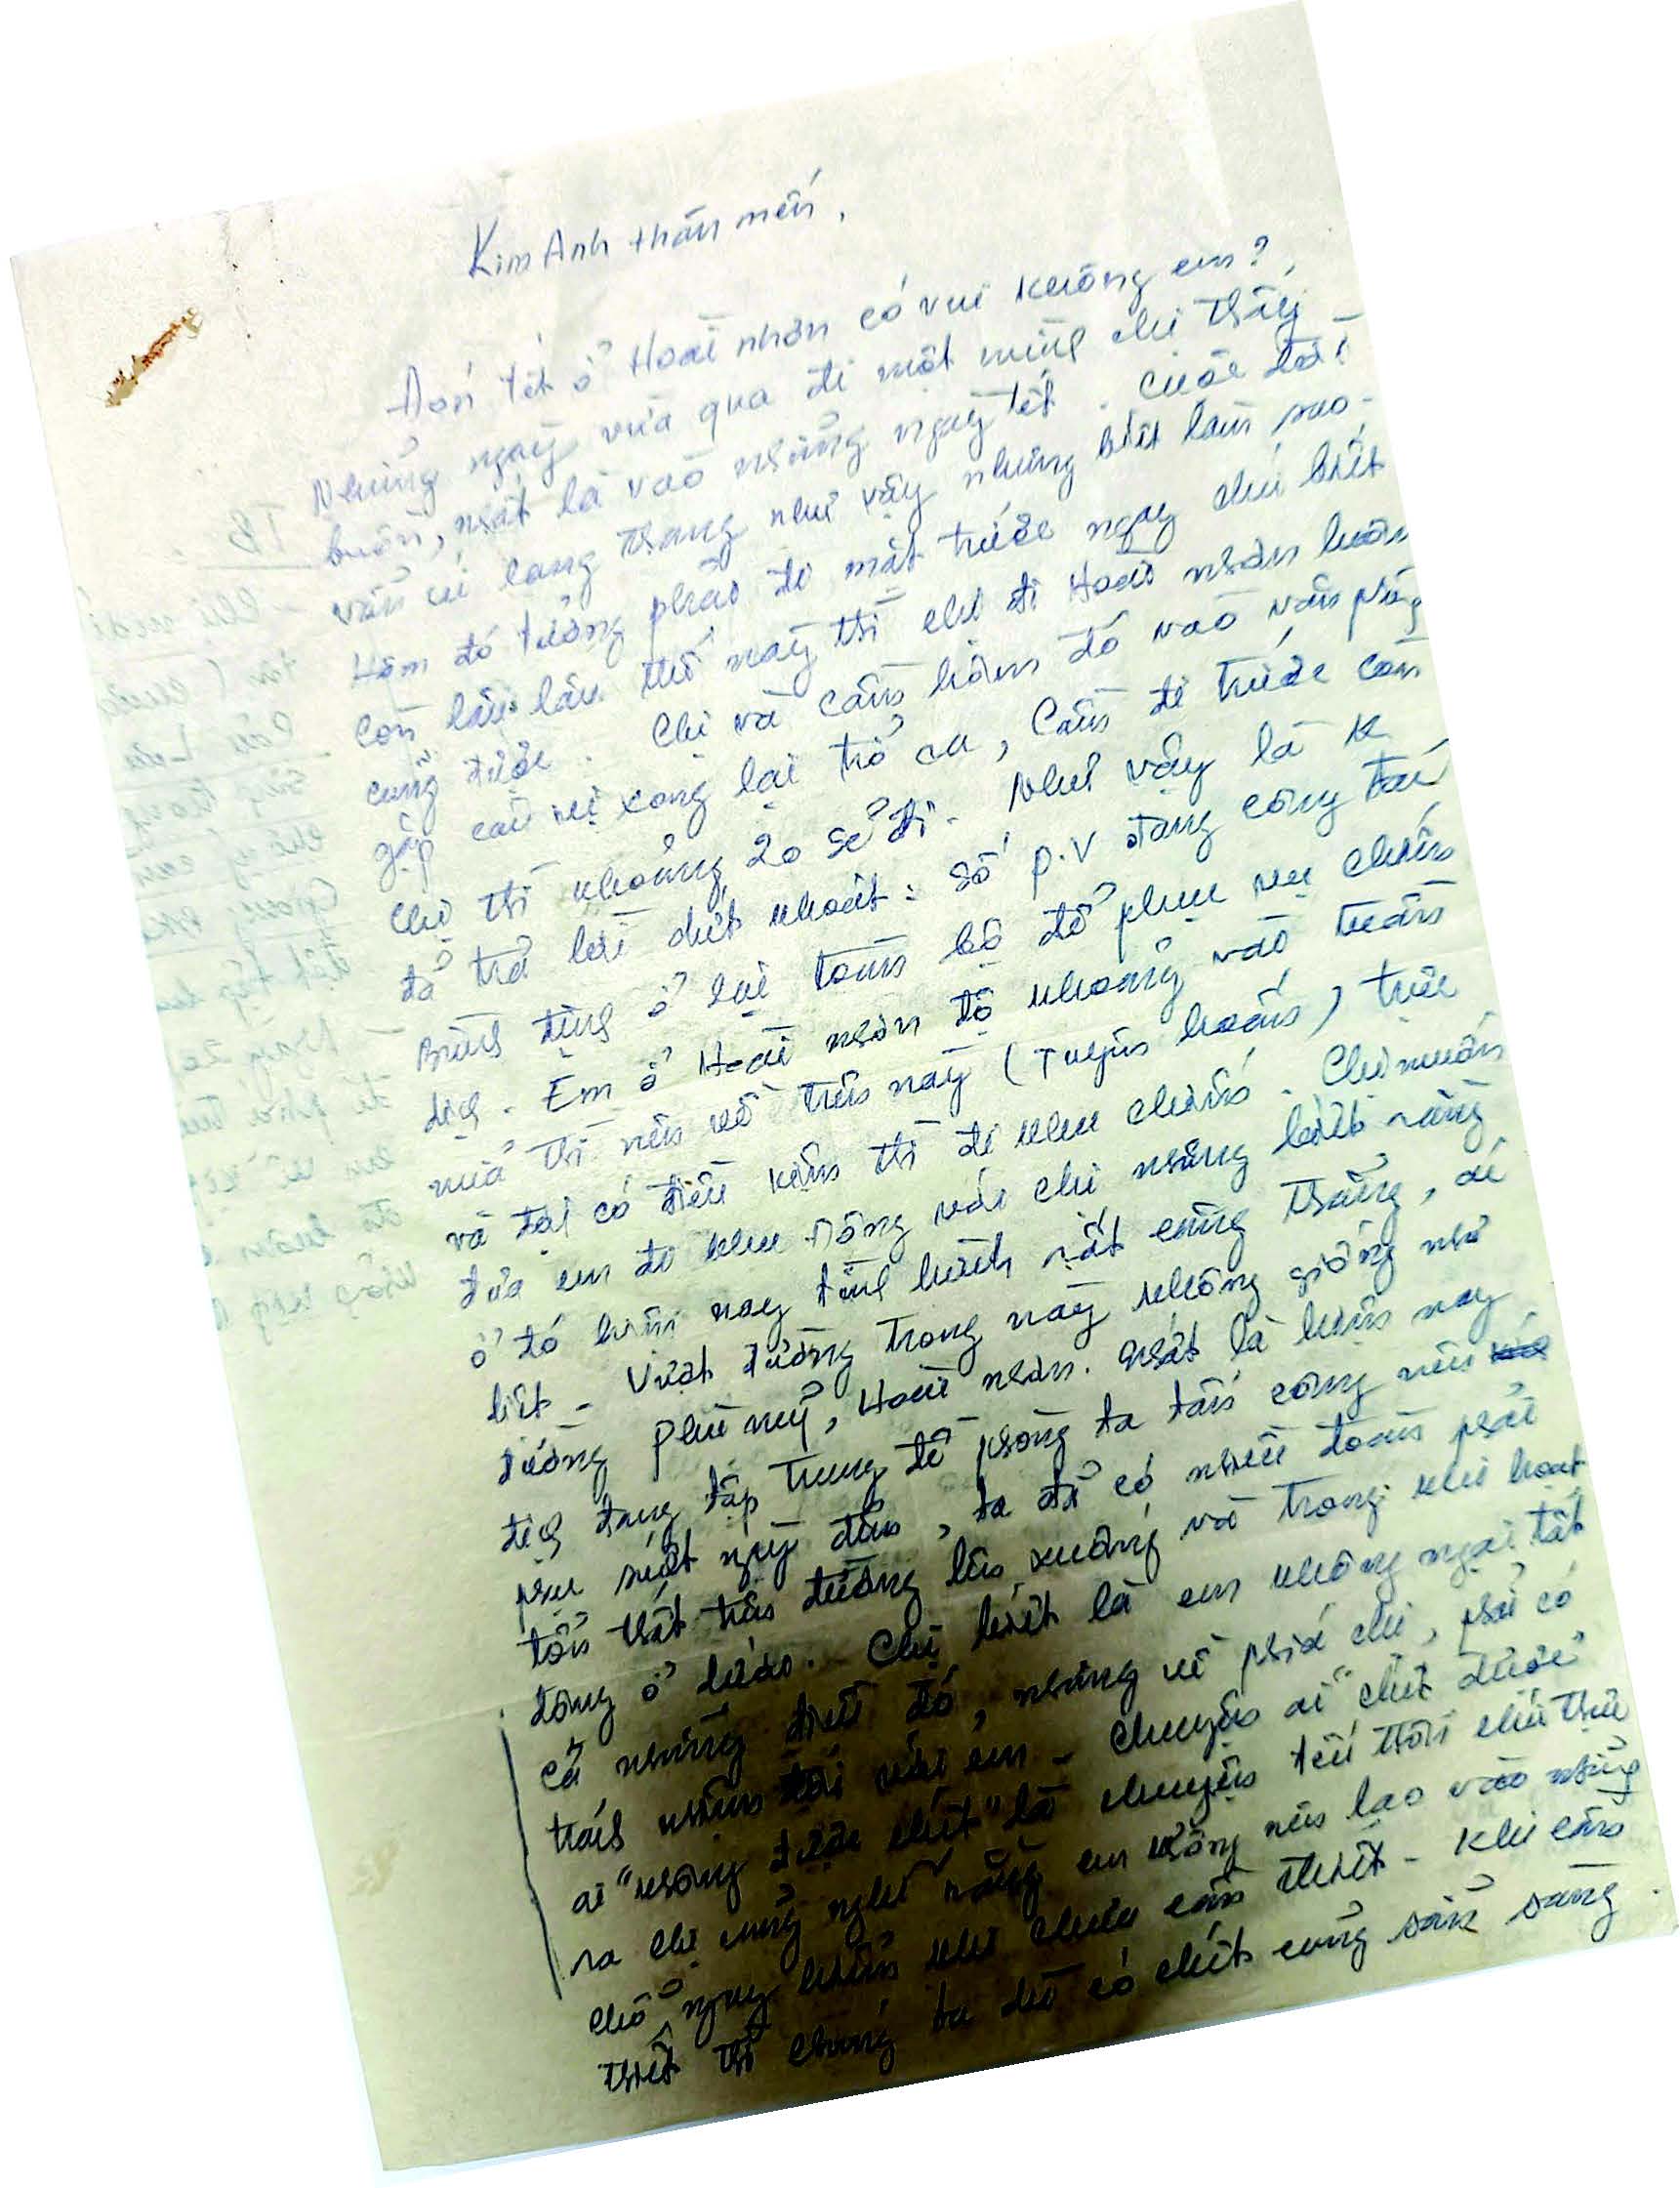 Kim Anh thân mến,
Đón tết ở Hoài nhơn có vui không em?
Những ngày vừa qua đi một mình chị thấy
buồn, nhất là vào những ngày tết. Cuộc đời
vẫn cứ lang thang như vậy nhưng biết làm sao.
Hôm đó tưởng phải đi mặt trước ngay chứ biết
còn lâu lâu thế này thì chị đi Hoài nhơn luôn
cũng được. Chị và Cẩm hôm đó vào văn phòng
gặp xong lại trở ra, Cẩm đi trước còn
chị thì khoảng 20 sẽ đi. Như vậy là K
đã trả lời dứt khoát: số P.V đang công tác
Bình định ở lại toàn bộ để phục vụ chiến
dịch. Em ở Hoài nhơn độ khoảng vào tuần
nữa thì nên về trên này (Tuyên huấn) trực
và đợi có điều kiện thì đi khu chính. Chị muốn
đưa em đi khu Đông với chị nhưng biết rằng
ở đó hiện nay tình hình rất căng thẳng, ác
liệt - Vượt đường trong này không giống như
đường Phù mỹ, Hoài nhơn. Nhất là hiện nay
địch đang tập trung đề phòng ta tấn công nên
phục suốt ngày đêm, ta đã có nhiều đoàn phải
tổn thất trên đường lên xuống và trong khi hoạt
động ở dưới. Chị biết là em không ngại tất
cả những điều đó, nhưng về phía chị, phải có
trách nhiệm đối với em - chuyện ai "chết được
ai "không được chết" là chuyện tếu thôi chứ thực
ra chị cũng nghĩ rằng em không nên lao vào những
chỗ nguy hiểm khi chưa cần thiết - Khi cần
thiết thì chúng ta dù có chết cũng sẵn sàng.
TB